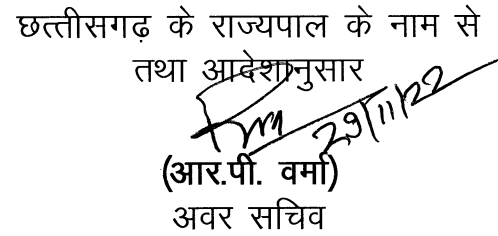 छत्तीसगढ़ के राज्यपाल के नाम से
तथा आदेशानुसार
29/11/22
(आर.पी. वर्मा)
अवर सचिव